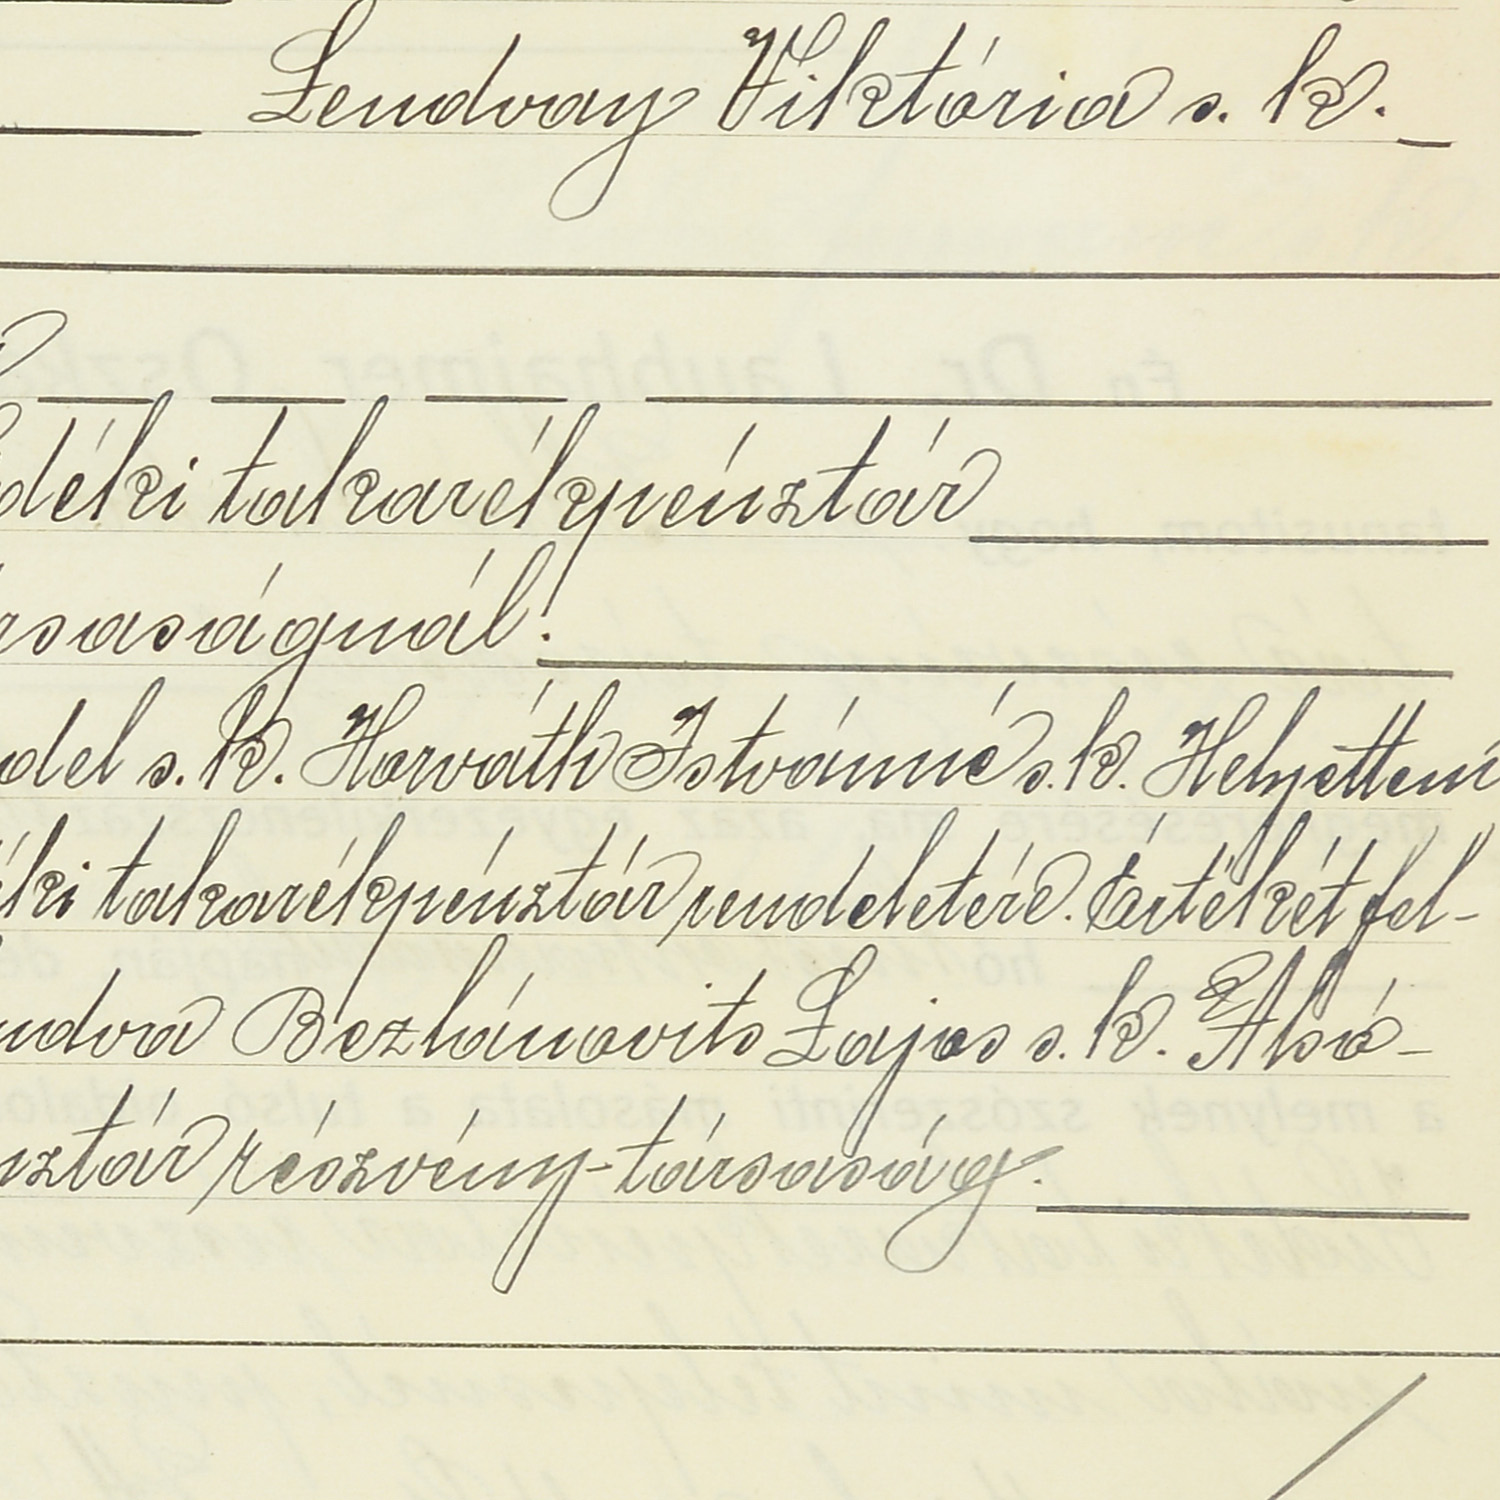 Lendvay Viktória s. k.
déki takarékpénztár
rsaságnál!
del s. k. Horváth Istvánné s. k. Helyettem
éki takarékpénztár rendeletére. Értékét fel-
ndva Bezhánovits Lajos s. k. Alsó-
nztár részvény-társaság.